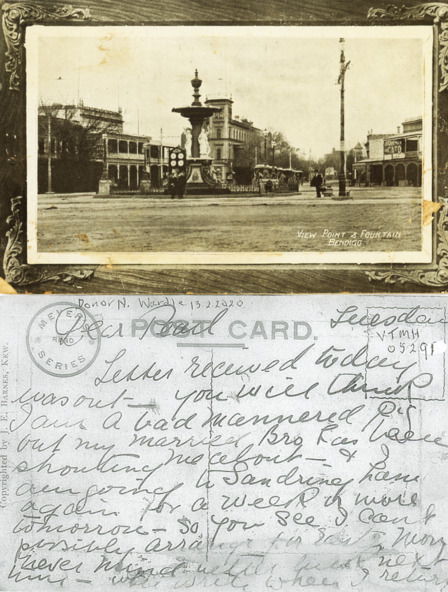 VIEW POINT & FOUNTAIN
BENDIGO
Donor N. Wardle 13.2.2020
MEYER
SERIES
POST CARD.
Copyrighted by J. E. BARNES, KEW.
VTMH
Tuesday
Dear
Letter received today
was out - you will think
I am a bad mannered Pig
but my married Bro has been
shouting me about - & I
am going to Sandringham
again for a week or more
tomorrow - so you see I can't
possibly arrange for
never mind better luck next
time - will write when I return